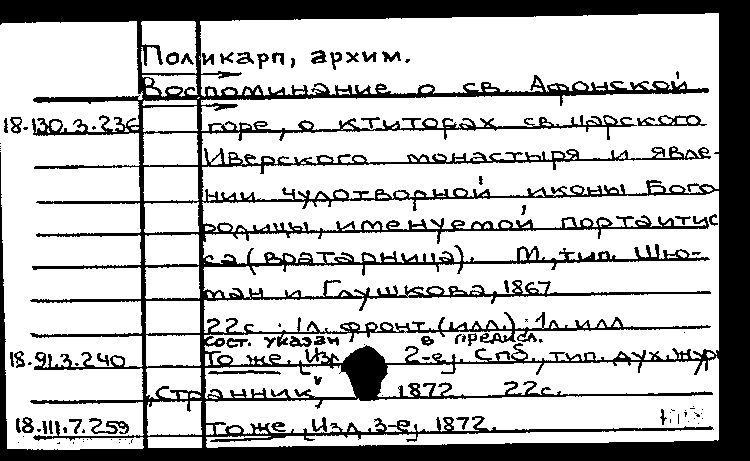 Поликарп, архим.
Воспоминание о св. Афонской
18.130.3.236 горе, о ктиторах св. царского
Иверского монастыря и явле-
нии чудотворной иконы Бого-
родицы, именуемой портаитис-
са (вратарница). М., тип. Шю-
ман и Глушкова, 1867
22с.; 1л. фронт. (илл.); 1л. илл
сост. указан в предисл.
18.91.3.240 То же. [Изд. 2-е]. Спб., тип. дух. журн
„Странник“, 1872. 22с.
18.111.7.259 То же. [Изд. 3-е]. 1872.